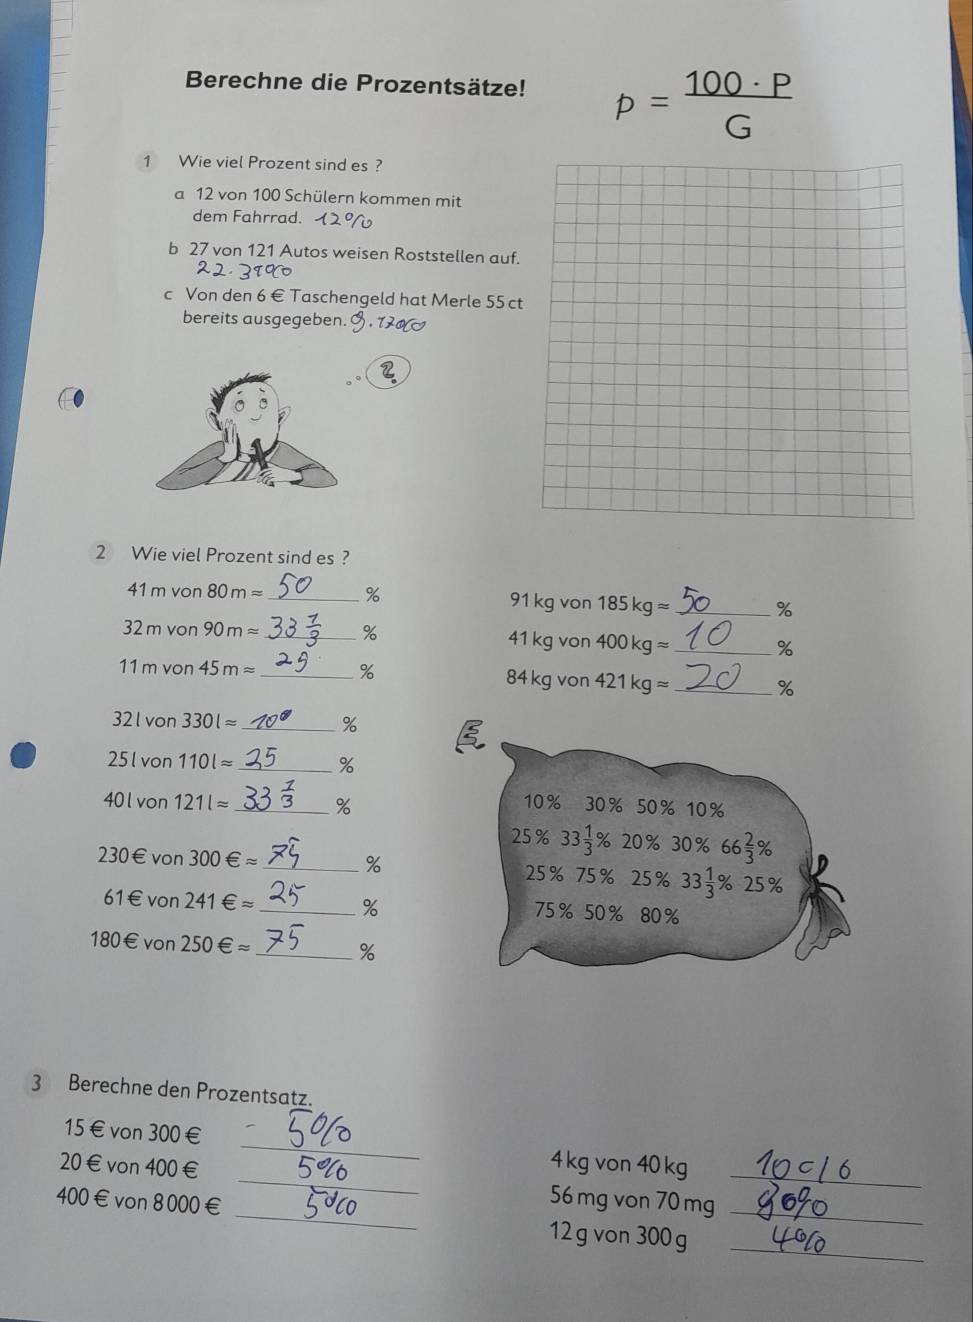 Berechne die Prozentsätze!
p = 100 · P / G
1 Wie viel Prozent sind es ?
a 12 von 100 Schülern kommen mit
dem Fahrrad. 12%
b 27 von 121 Autos weisen Roststellen auf.
c Von den 6 € Taschengeld hat Merle 55 ct
bereits ausgegeben.
?
2 Wie viel Prozent sind es ?
41 m von 80 m ≈ 50 %
32 m von 90 m ≈ 33 1/3 %
11 m von 45 m ≈ 25 %
32 l von 330 l ≈ 10 %
25 l von 110 l ≈ 25 %
40 l von 121 l ≈ 33 1/3 %
230 € von 300 € ≈ 75 %
61 € von 241 € ≈ 25 %
180 € von 250 € ≈ 75 %
91 kg von 185 kg ≈ 50 %
41 kg von 400 kg ≈ 10 %
84 kg von 421 kg ≈ 20 %
10% 30% 50% 10%
25% 33 1/3% 20% 30% 66 2/3%
25% 75% 25% 33 1/3% 25%
75% 50% 80%
3 Berechne den Prozentsatz.
15 € von 300 € 5%
20 € von 400 € 5%
400 € von 8 000 € 5%
4 kg von 40 kg 10%
56 mg von 70 mg 80%
12 g von 300 g 4%